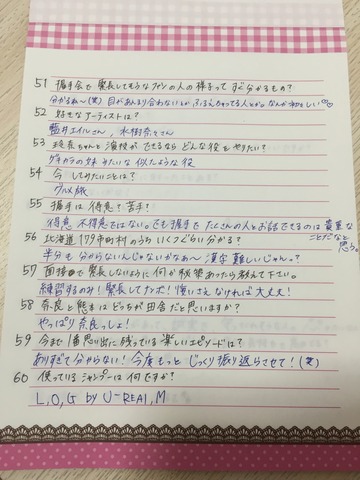 51 握手会で緊張してそうなファンの人の様子ってすぐ分かるもの?
分かるね〜(笑) 目があんまり合わないとか、ふるえちゃってる人とか。なんか初々しい♡
52 好きなアーティストは?
藍井エイルさん、水樹奈々さん
53 玲奈ちゃんと演技ができるならどんな役をやりたい?
ゲキカラの妹みたいな似たような役
54 今してみたいことは?
グルメ旅
55 握手は得意?苦手?
得意 不得意ではない。でも握手でたくさんの人とお話できるのは貴重な
ことだなと
思う。
56 北海道179市町村のうちいくつぐらい分かる?
半分も分からないんじゃないかなぁ〜漢字難しいじゃん。?
57 面接で緊張しないように何か秘策あったら教えて下さい。
練習するのみ!緊張してナンボ!悔いさえなければ大丈夫!
58 奈良と熊本はどっちが田舎だと思いますか?
やっぱり奈良っしょ!
59 今まで1番思い出に残っている楽しいエピソードは?
ありすぎて分からない!今度もっとじっくり振り返らさせて!(笑)
60 使っているシャンプーは何ですか?
L,O,G by U-REAL,M